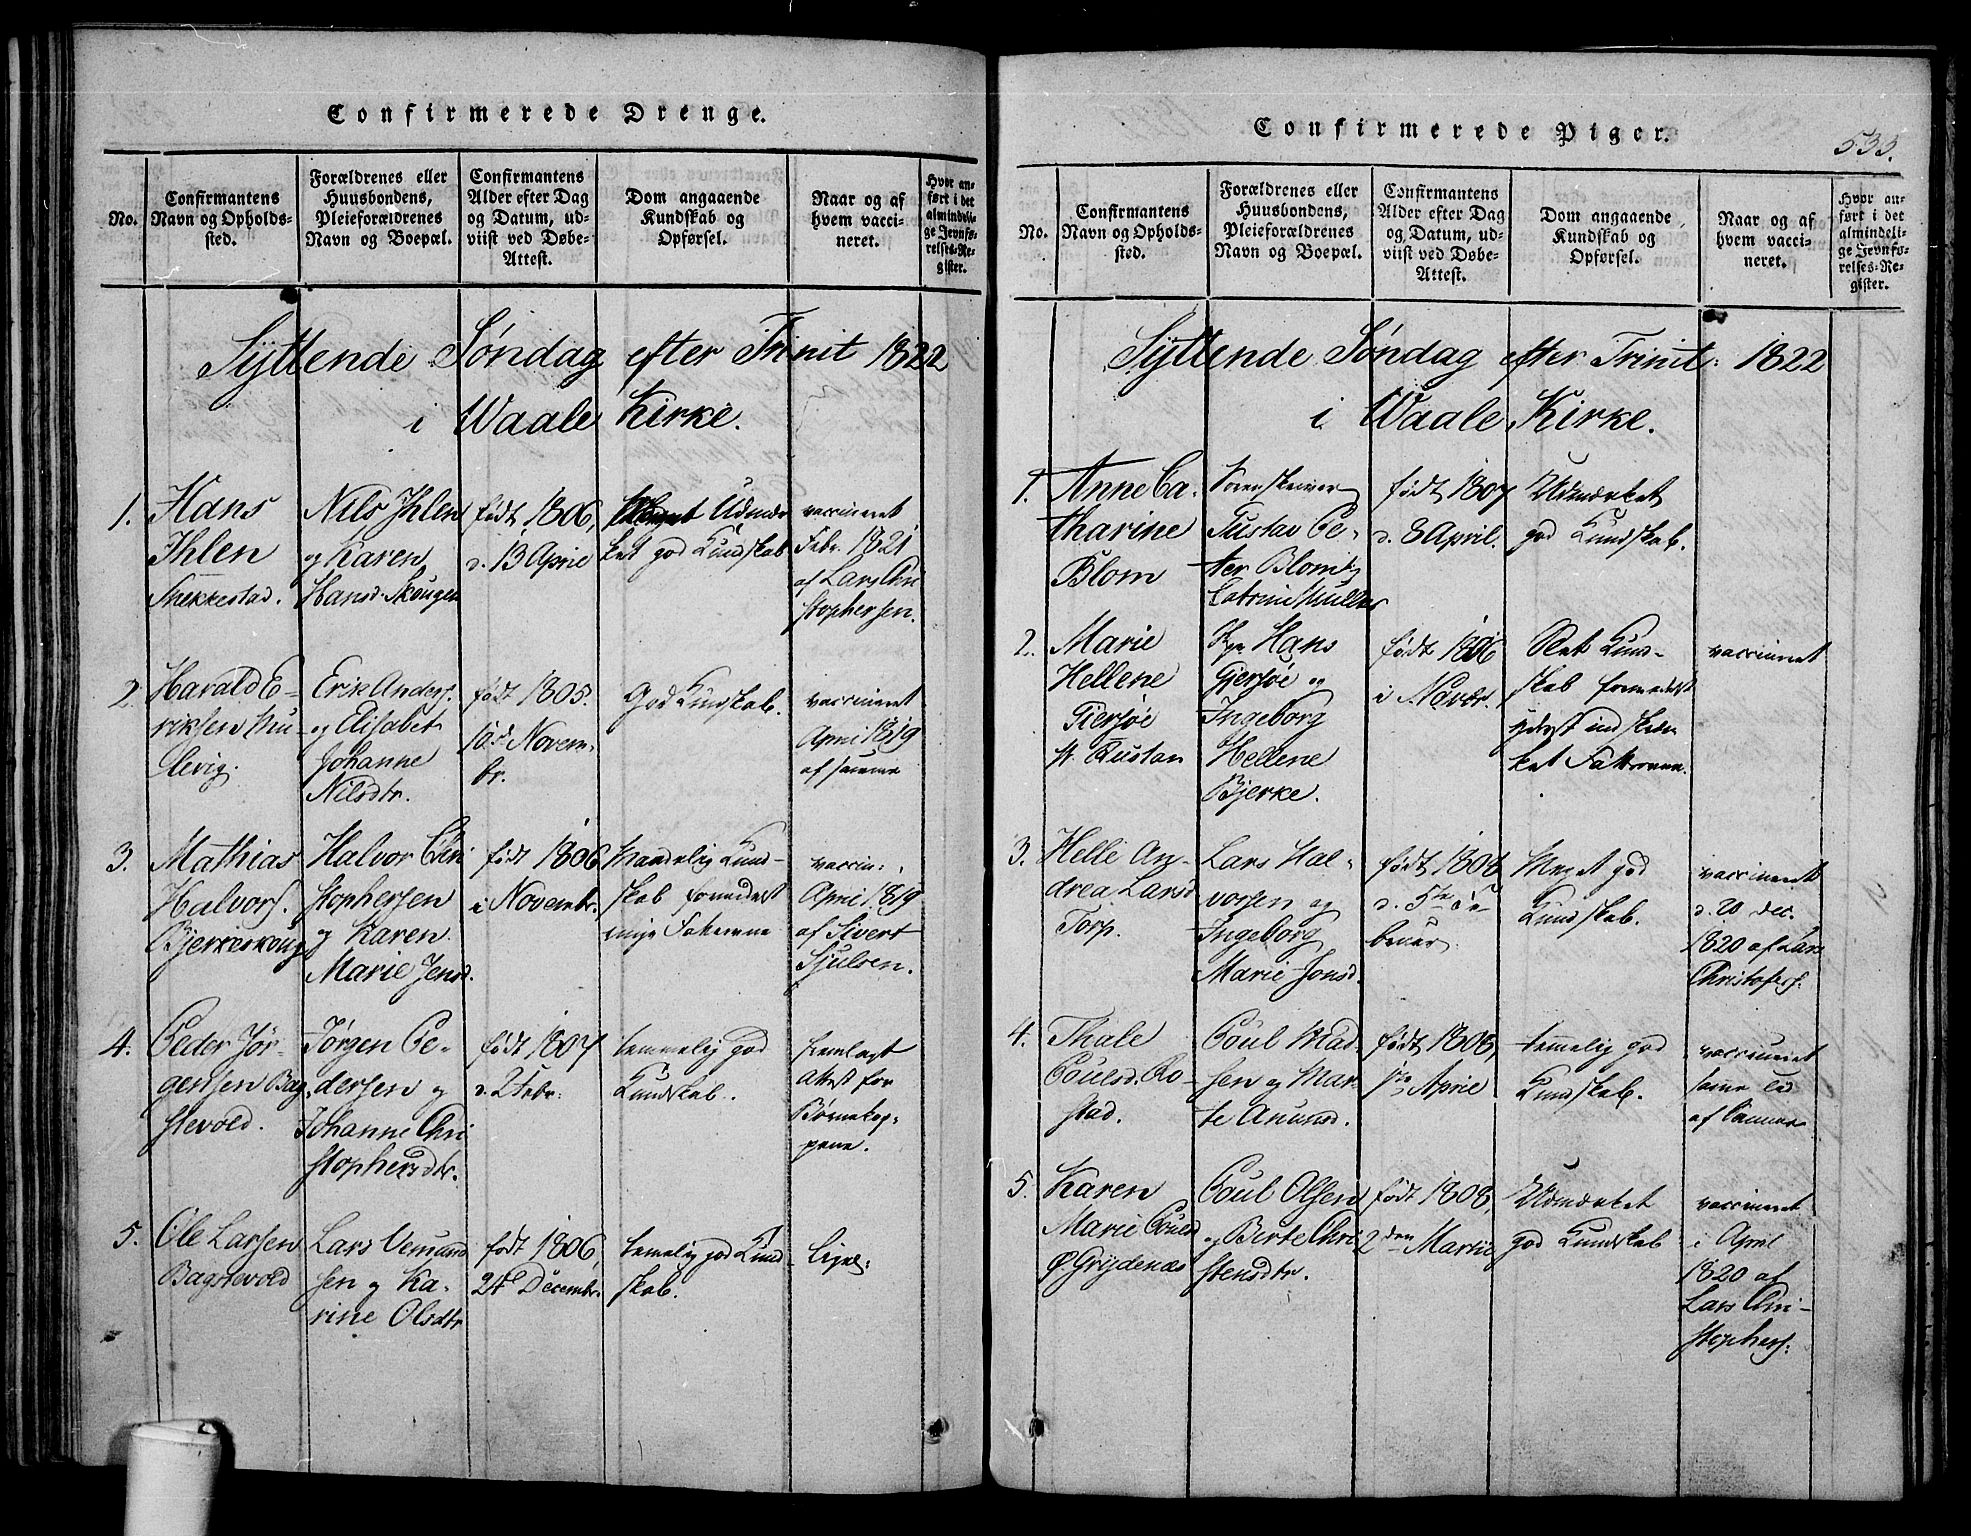 Confirmerede Drenge.
No.
Confirmantens
Navn og Opholds-
sted.
Forældrenes eller
Huusbondens,
Pleieforældrenes
Navn og Boepæl.
Confirmantens
Alder efter Dag
og Datum, ud-
viist ved Døbe-
Attest.
Dom angaaende
Kundskab og
Opførsel.
Naar og af
hvem vacci-
neret.
Hvor an-
ført i det
almindeli-
ge Jevnfø-
relses-Re-
gister.
Syttende Søndag efter Trinit 1822
i Waale Kirke.
1.
Hans
Ihlen
Nils Ihlen
og Karen
Hansd. Skougen
født 1806,
d. 13 April
Udmær
ket god Kundskab
vaccineret
Febr. 1821
af Lars Chri
stophersen.
2.
Harald E-
riksen
Erik Anders.
og Elisabet
Johanne
Nilsdtr.
født 1805.
10d. Novem-
br.
God Kundskab.
vaccineret
April 1819
af samme
3.
Mathias
Halvors.
Halvor Chri
stophersen
og Karen
Marie Jensd.
født 1806
i Novembr.
Maadelig Kund-
skab formedelst
vaccin:
April 1819
af Sivert
Sjulsen.
4.
Peder Jør-
gensen Bag
stevold.
Jørgen Pe-
dersen og
Johanne Chri
stophersdtr.
født 1807
d. 2 Febr:
temmelig god
Kundskab.
fremlagt
Attest for
Børnekop-
pene.
5.
Ole Larsen
Bagstevold
Lars Amund
sen og Ka-
rine Olsdtr
født 1806,
24d Decembr.
temelig god Kund
skab.
Confirmerede Piger.
533.
No.
Confirmantens
Navn og Opholds-
sted.
Forældrenes eller
Huusbondens,
Pleieforældrenes
Navn og Boepæl.
Confirmantens
Alder efter Dag
og Datum, ud-
viist ved Døbe-
Attest.
Dom angaaende
Kundskab og
Opførsel.
Naar og af
hvem vacci-
neret.
Hvor an-
ført i det
almindeli-
ge Jevnfø-
relses-Re-
gister.
Syttende Søndag efter Trinit: 1822
i Waale Kirke.
1.
Anne Ca-
tharine
Blom
Sorenskriver
Gustav Pe-
ter Blom og
Catrine Muller
født 1807
d. 8 April.
Udmærket
god Kundskab.
2.
Marie
Hellene
Giersøe
Hans
Gjersøe og
Ingeborg
Hellene
Bjerke.
født 1806
i Novbr.
Slet Kund-
skab formedelst
vaccineret
3.
Helle An-
drea Larsd
Torp.
Lars Hal-
vorsen og
Ingeborg
Marie Jonsd.
født 1808
Meget god
Kundskab.
vaccineret
d. 20 Dec.
1820 af Lars
Christofers.
4.
Thale
Poulsd. Ro-
stad.
Poul Mad-
sen og Mar-
te Anunsd.
født 1808,
April
temelig god
Kundskab.
vaccineret
af samme
5.
Karen
Marie Pouls
Ø Grydenæs
Poul Olsen
og Berte Chri
stensdtr.
født 1808,
2den Martii
Udmærket
god Kundskab
vaccineret
i April
1820 af
Lars Chri-
stophers: